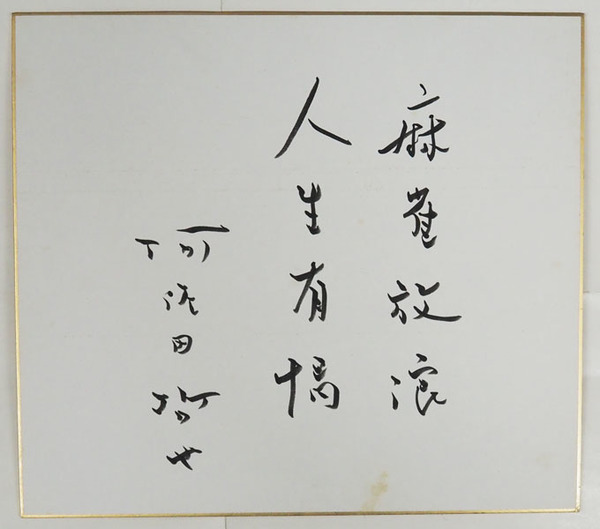 麻雀放浪
人生有禍
阿佐田哲也